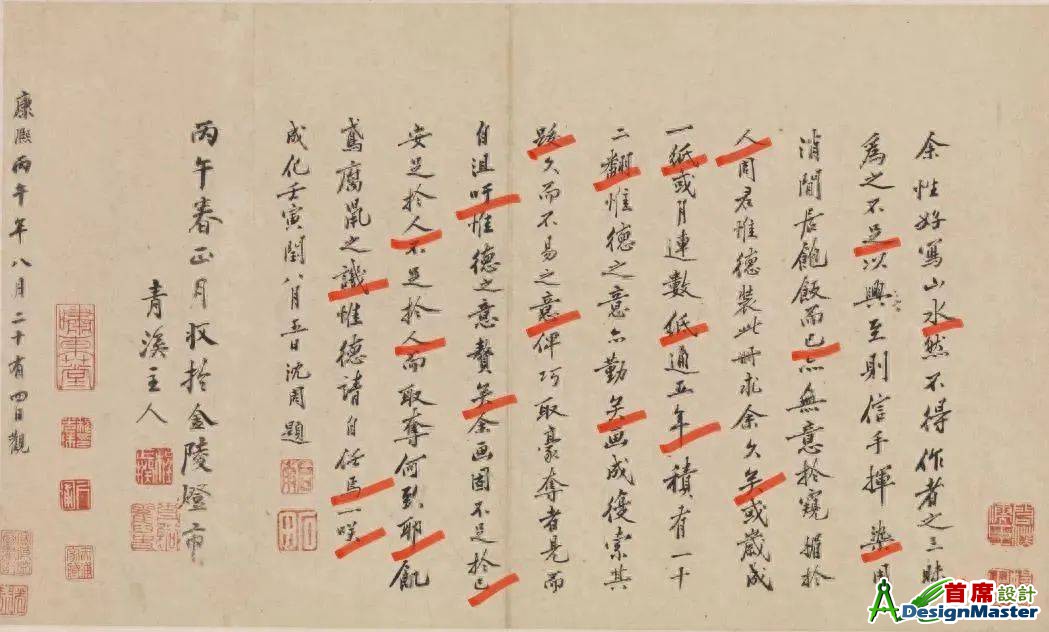 余性好寫山水然不得作者之三昧
為之不足以興至則信手揮染用
消閒居飽飯而已亦無意於窺媚於
人周君惟德裝此册求余久矣或歲成
一紙或月連數紙通五年積有一十
二翻惟德之意亦勤矣画成復索其
跋久而不易之意俾巧取豪奪者見而
自沮吁惟德之意贅矣余画固不足於己
安足於人不足於人而取奪何致耶飢
鳶腐鼠之譏惟德請自任焉一咲
成化壬寅閏八月五日沈周題
丙午春正月収於金陵燈市
青溪主人
康熙丙午年八月二十有四日觀
首席設計
DesignMaster